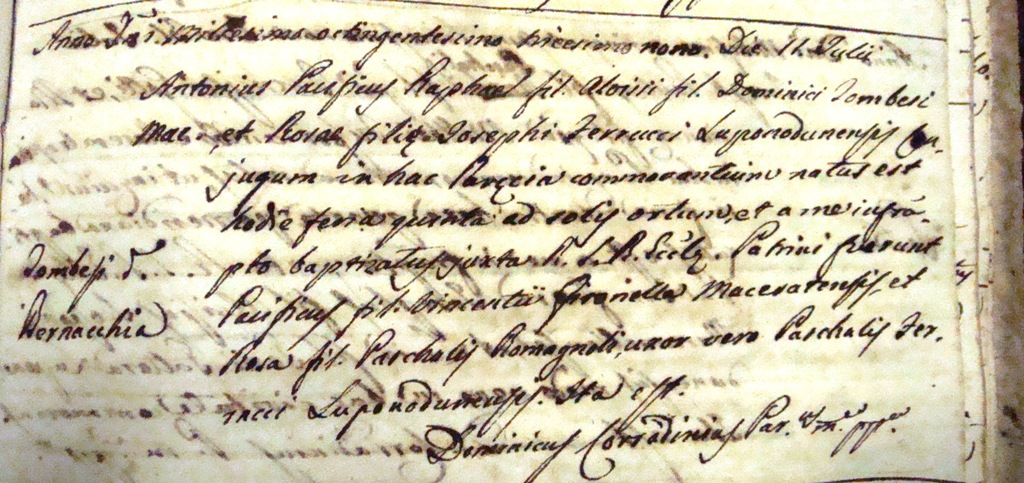 Anno Dñi millesimo octingentesimo tricesimo nono. Die 11. Julii
Antonius Pacificus Raphael fil. Aloisii fil. Dominici Tombesi
Mac. et Rosae filię Josephi Ferracci Luponodunensis Con-
jugum in hac Parœcia commorantium natus est
hodie feria quinta ad solis ortum, et a me infra-
Tombesi d.° .... pto baptizatus juxta R. S. R. Eccl̃ę. Patrini fuerunt
Bernacchia
Pacificus fil. Vincentii Gironella Maceratensis, et
Rosa fil. Paschalis Romagnoli, uxor vero Paschalis Fer-
racci Luponodunensis. Ita est.
Dominicus Corradinius Par.